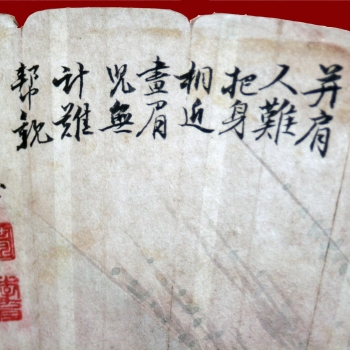 并肩
人難
把身
相近
畫眉
兒無
計難
幫親